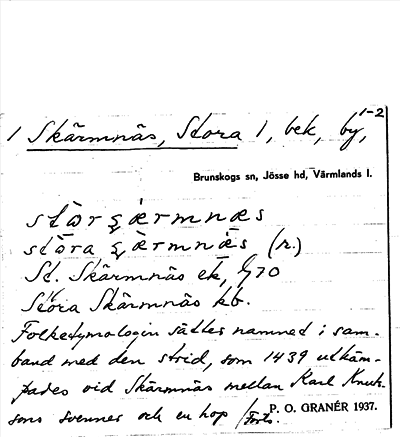 1-2
1 Skärmnäs, Stora 1, bek, by,
Brunskogs sn, Jösse hd, Värmlands l.
stōr ʂærmnæs
stōra ʂærmnæs (r.)
St. Skärmnäs ek,
Stora Skärmnäs kb.
Folketymologin sätter namnet i sam-
band med den strid, som 1439 utkäm-
pades vid Skärmnäs mellan Karl Knuts-
sons svenner och en hop /Forts.
P. O. GRANÉR 1937.